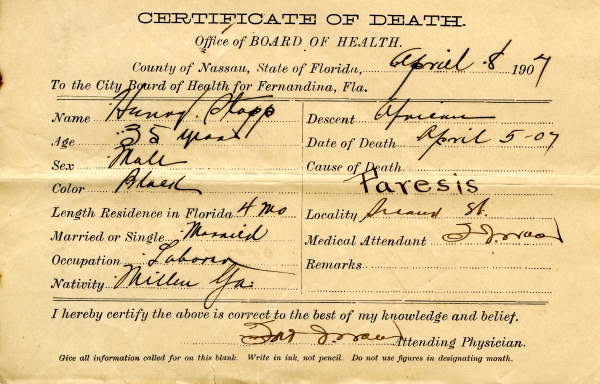 CERTIFICATE OF DEATH.
Office of BOARD OF HEALTH.
County of Nassau, State of Florida, April 8 1907
To the City Board of Health for Fernandina, Fla.
Name Henry Stapp
Age 35 years
Sex Male
Color Black
Length Residence in Florida 4 mo
Married or Single Married
Occupation Laborer
Nativity Millen Ga.
Descent African
Date of Death April 5-07
Cause of Death
Paresis
Locality St.
Medical Attendant
Remarks
I hereby certify the above is correct to the best of my knowledge and belief.
Attending Physician.
Give all information called for on this blank. Write in ink, not pencil. Do not use figures in designating month.